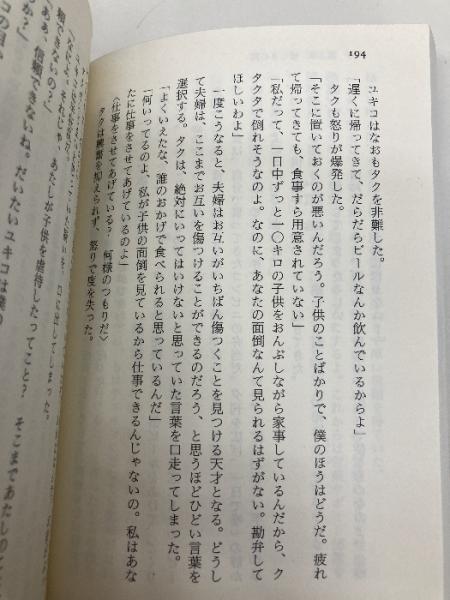 194
ユキコはなおもタクを非難した。
「遅くに帰ってきて、だらだらビールなんか飲んでいるからよ」
タクも怒りが爆発した。
「そこに置いておくのが悪いんだろう。子供のことばかりで、僕のほうはどうだ。疲れ
て帰ってきても、食事すら用意されていない」
「私だって、一日中ずっと一〇キロの子供をおんぶしながら家事しているんだから、ク
タクタで倒れそうなのよ。なのに、あなたの面倒なんて見られるはずがない。勘弁して
ほしいわよ」
一度こうなると、夫婦はお互いがいちばん傷つくことを見つける天才となる。どうし
て夫婦は、ここまでお互いを傷つけることができるのだろう、と思うほどひどい言葉を
選択する。タクは、絶対にいってはいけないと思っていた言葉を口走ってしまった。
「よくいえたな、誰のおかげで食べられると思っているんだ」
「何いってるのよ、私が子供の面倒を見ているから仕事できるんじゃないの。私はあな
たに仕事をさせてあげているのよ」
〈仕事をさせてあげている？　何様のつもりだ〉
タクは興奮を抑えられず、怒りで度を失った。
あたしが子供を虐待したってこと？　そこまであたしのこと
「ああ、信頼できないね。だいたいユキコは僕の